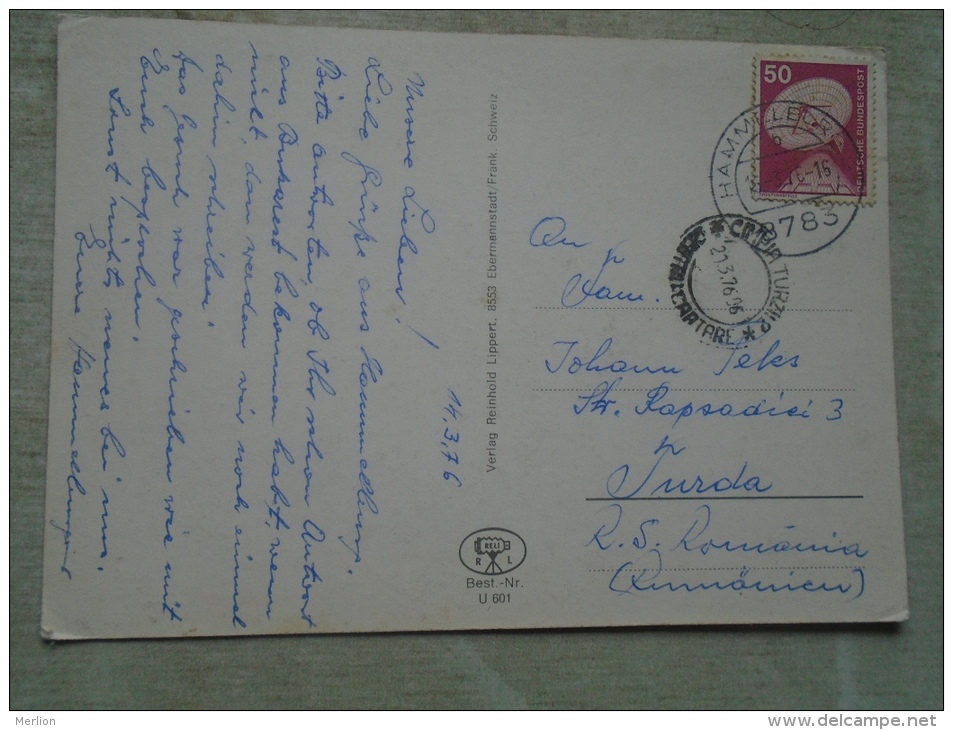 14.3.76
Unsere Lieben!
Liebe Grüße aus Hammelburg.
Bitte antwortet, ob Ihr schon Antwort
aus Bukarest bekommen habt, wenn
nicht, dann werden wir noch einmal
dahin schreiben.
Das Gesuch war geschrieben wie mit
Euch besprochen.
Sonst nichts neues bei uns.
Eure
Verlag Reinhold Lippert, 8553 Ebermannstadt/Fränk. Schweiz
RELI
R L
Best.-Nr.
U 601
50
DEUTSCHE BUNDESPOST
HAMMELBURG
-16
8783
CIMPIA TURZII 2
21.3.76
CARTARE
An
Fam.
Johann Teks
Str. Rapsadiei 3
Turda
R. S. România
(Rumänien)
Merlion